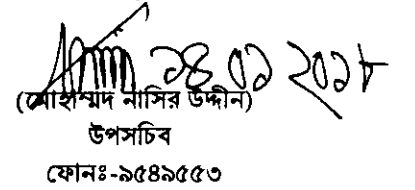 ২৪ ০১ ২০১৮
(মোহাম্মদ নাসির উদ্দীন)
উপসচিব
ফোনঃ-৯৫৪৯৫৫৩